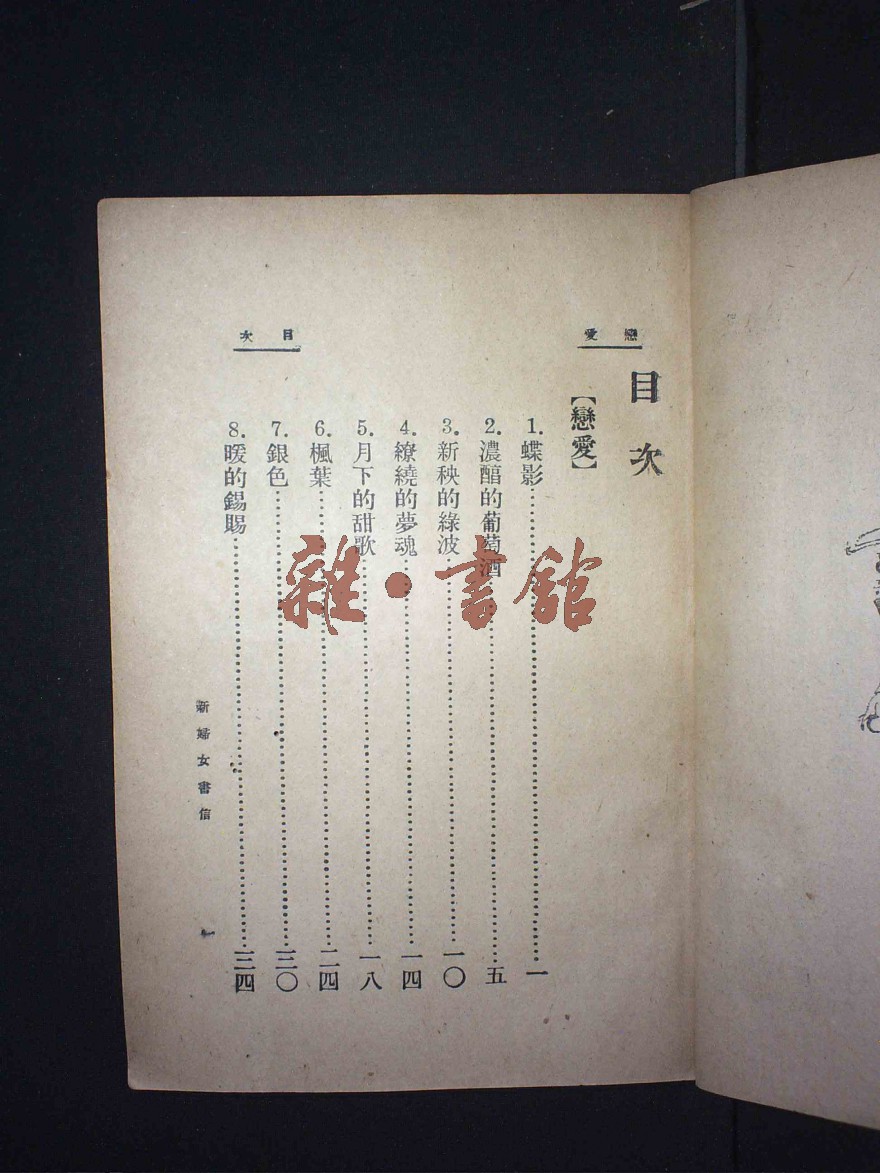 戀愛
目次
目次
【戀愛】
1.蝶影……一
2.濃醑的葡萄酒……五
3.新秧的綠波……一〇
4.繚繞的夢魂……一四
5.月下的甜歌……一八
6.楓葉……二四
7.銀色……三〇
8.暖的錫賜……三四
新婦女書信
雜·書館